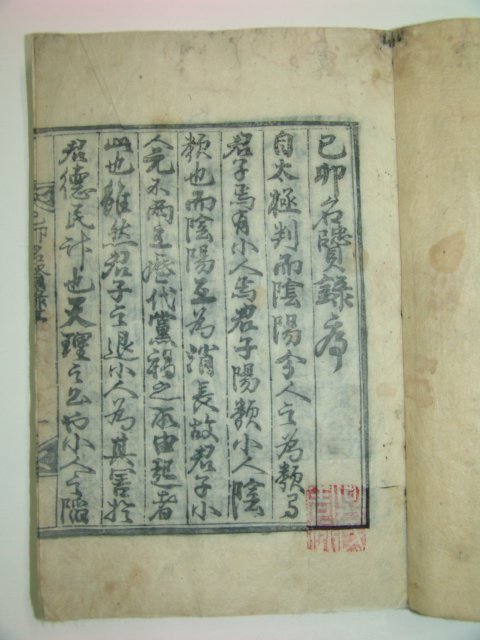 己卯名賢錄序
自太極判而陰陽分人之為類有
君子焉有小人焉君子陽類小人陰
類也而陰陽互為消長故君子小
人元不兩立歷代黨禍之所由起者
此也雖然君子之退小人為其害於
君德民計也天理之公也小人之陷
己卯名賢錄序